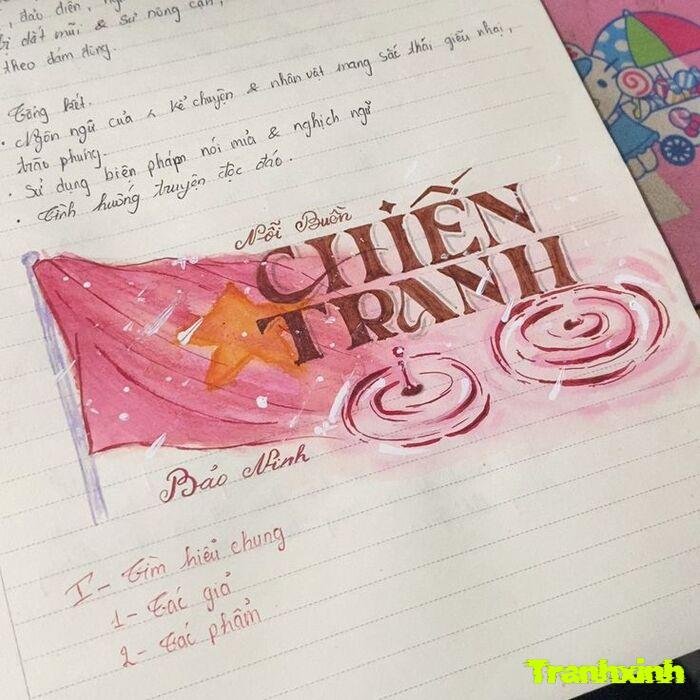 , đảo điên,
bị dắt mũi & sự nông cạn,
theo đám đông.
Tổng kết.
• Ngôn ngữ của kể chuyện & nhân vật mang sắc thái giễu nhại,
trào phúng.
• Sử dụng biện pháp nói mỉa & nghịch ngữ
• Tình huống truyện độc đáo.
Nỗi Buồn
CHIẾN
TRANH
Bảo Ninh
I - Tìm hiểu chung
1 - Tác giả
2 - Tác phẩm
Tranhxinh